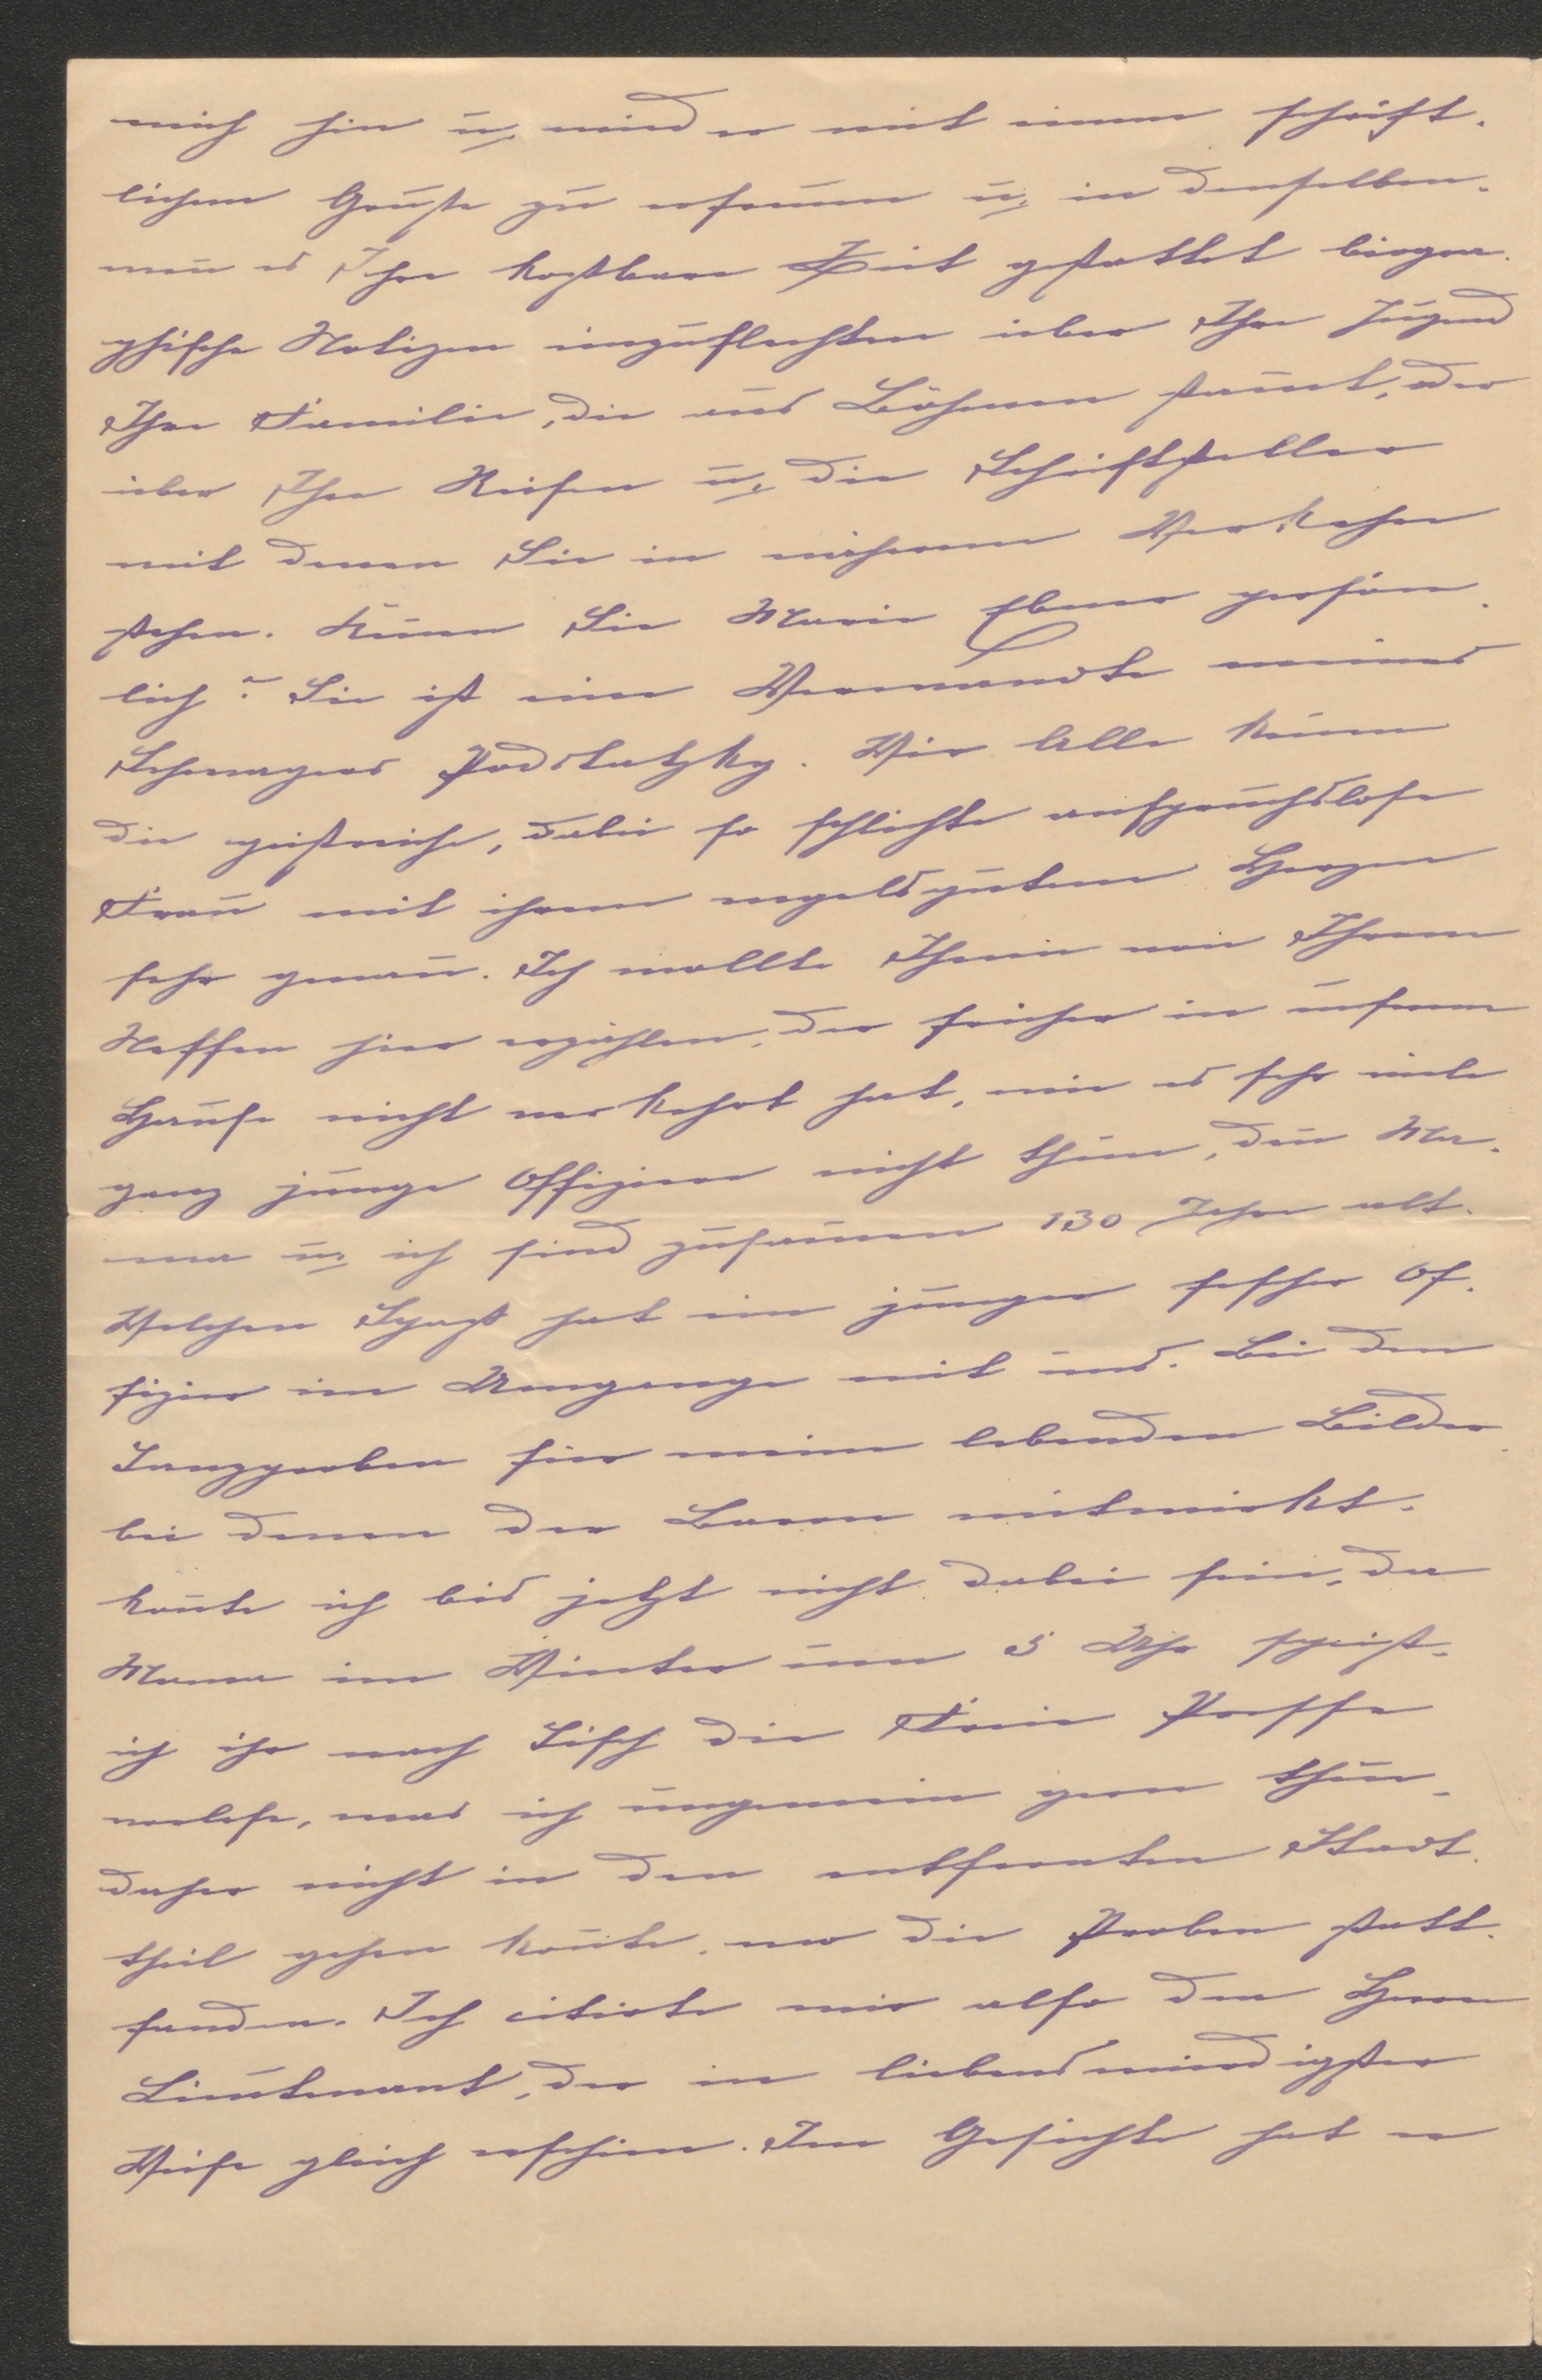 mich hin u. wieder mit einem schrift-
lichem Gruße zu erfreuen u. in denselben,
wen̄ es Ihre kostbare Zeit gestattet biogra-
phische Notizen einzuflechten über Ihre Jugend
Ihre Familie, die aus Böhmen stam̄t, oder
über Ihre Reisen u. die Schriftsteller
mit denen Sie in näherem Verkehre
stehen. Ken̄en Sie Marie Ebner persön-
lich? Sie ist eine Verwandte meines
Schwagers Podstatzky. Wir Alle ken̄en
die geistreiche, dabei so schlichte anspruchslose
Frau mit ihrem engelsgutem Herzen
sehr genau. Ich wollte Ihnen von Ihrem
Neffen hier erzählen, der früher in unserem
Hause nicht verkehrt hat, wie es sehr viele
ganz junge Offiziere nicht thun, den̄ Ma-
ma u. ich sind zusam̄en 130 Jahre alt.
Welchen Spaß hat ein junger fescher Of-
fizier im Umgange mit uns. Bei den
Tanzproben für meine lebenden Bilder
bei denen der Baron mitwirkt,
kon̄te ich bis jetzt nicht dabei sein, da
Mama im Winter um 5 Uhr speist,
ich ihr nach Tisch die Freie Presse
vorlese, was ich ungemein gern thue,
daher nicht in den entfernten Stadt-
theil gehen kon̄te, wo die Proben statt-
fanden. Ich citirte mir also den Herrn
Lieutenant, der in liebenswürdigster
Weise gleich erschien. Im Gesichte hat er